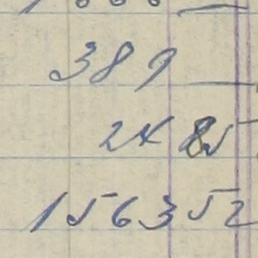 389 —
24 85
156352